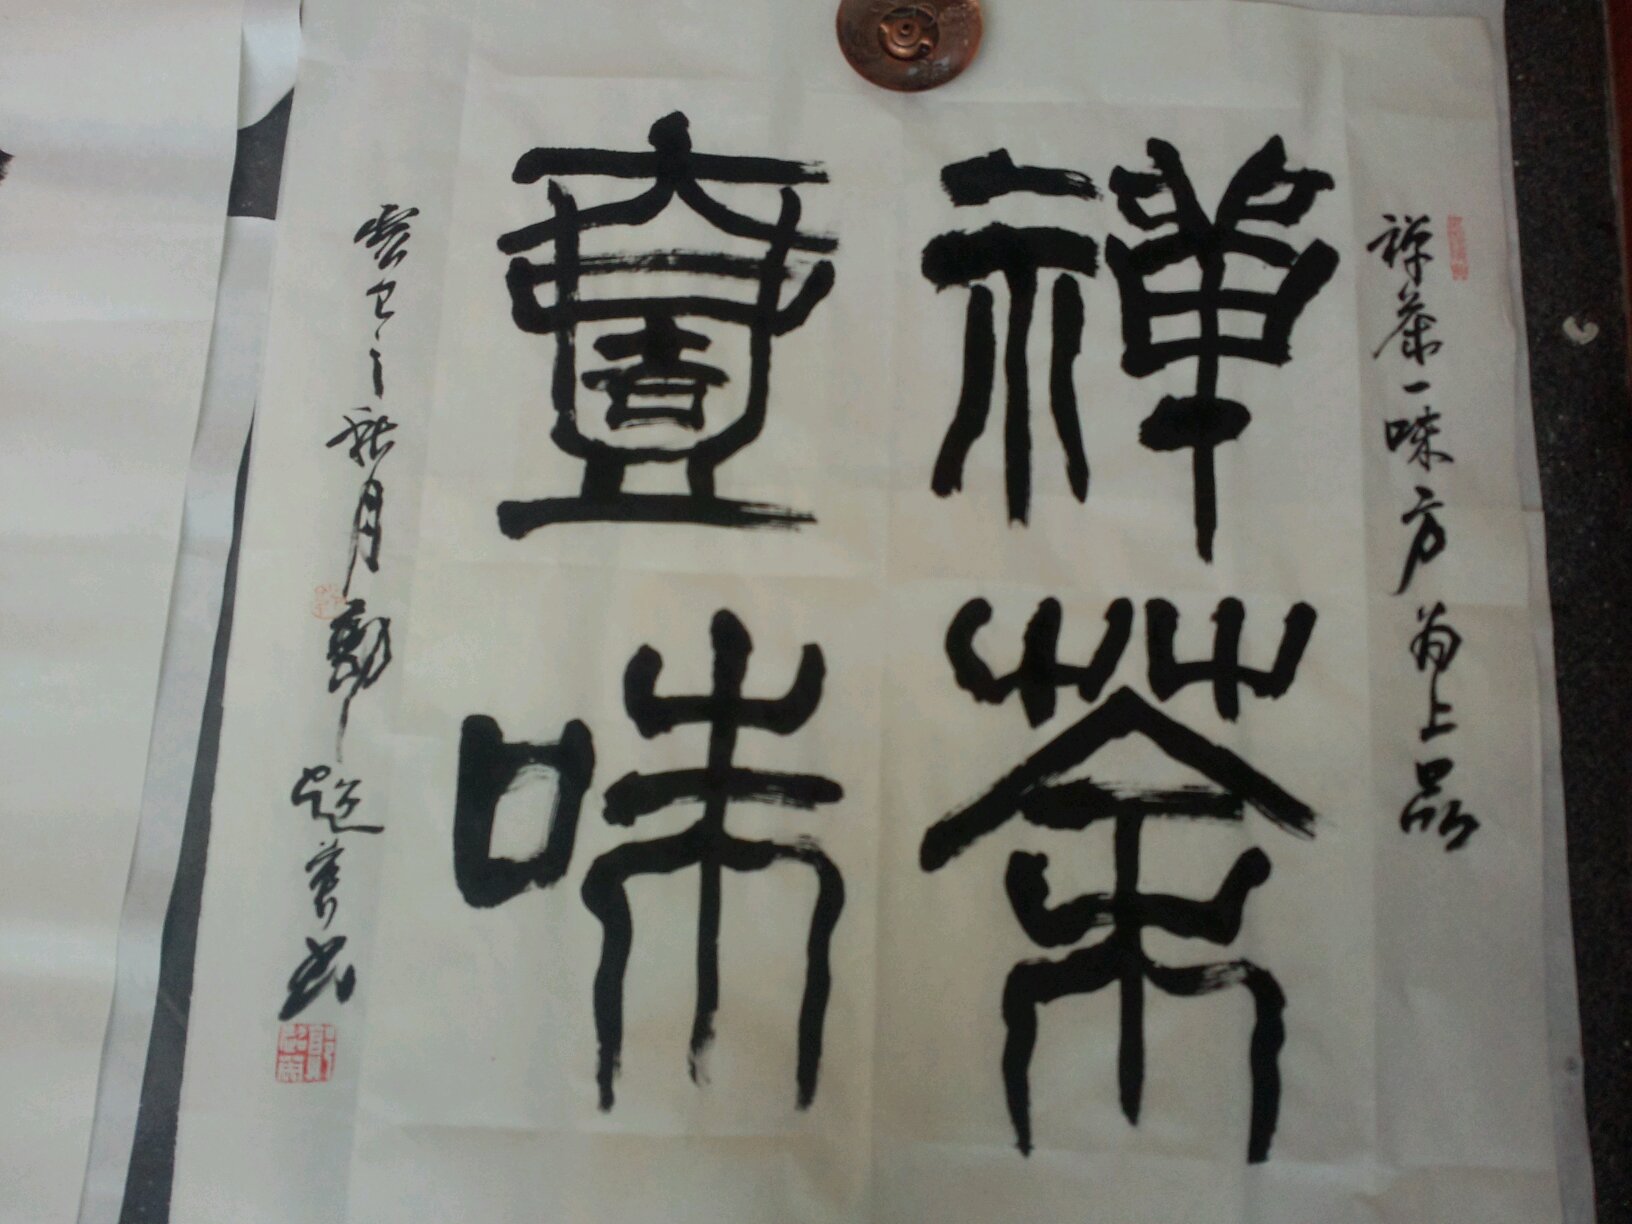 禅茶一味方为上品
禪茶
壹味
癸巳之秋月